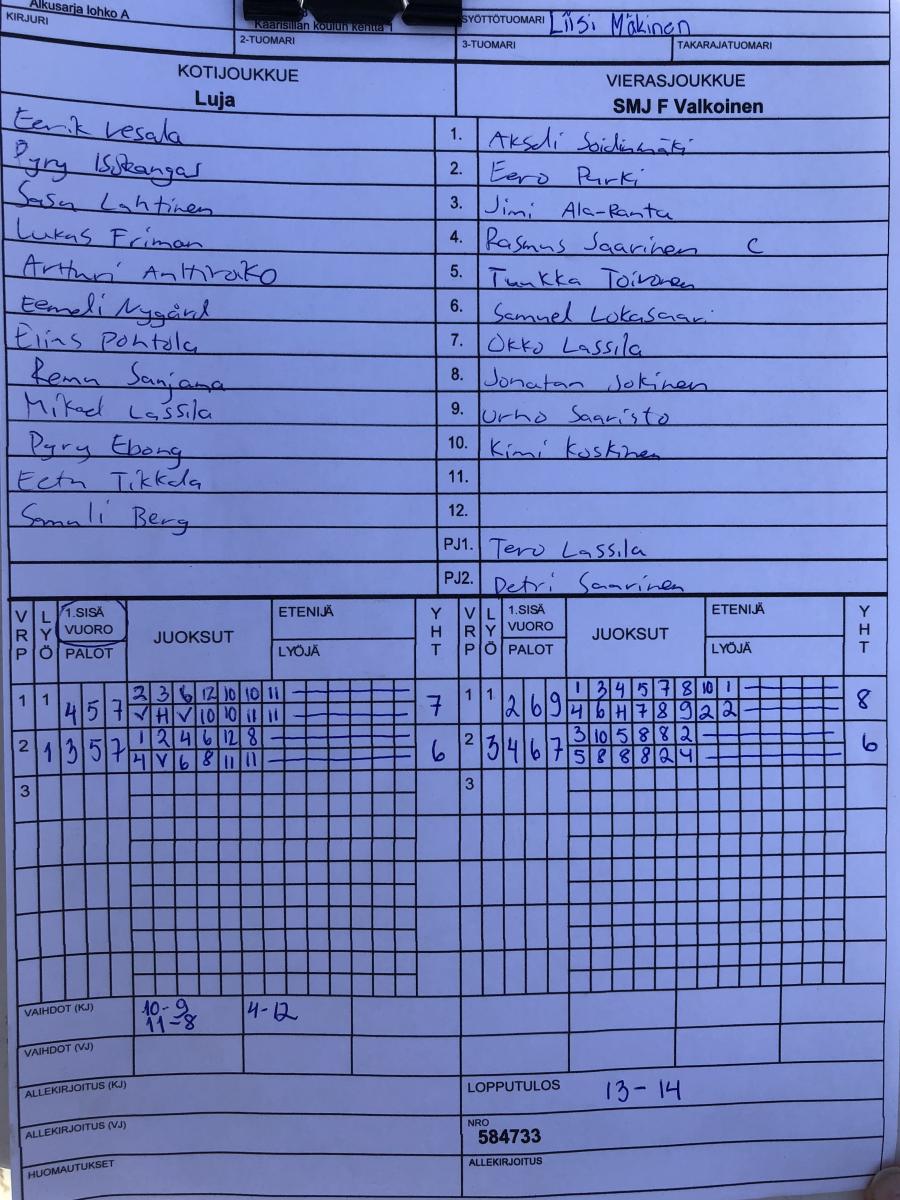 Alkusarja lohko A
KIRJURI
Kaarisillan koulun kenttä 1
2-TUOMARI
SYÖTTÖTUOMARI Liisi Mäkinen
3-TUOMARI TAKARAJATUOMARI
KOTIJOUKKUE
Luja
VIERASJOUKKUE
SMJ F Valkoinen
Eerik Vesala 1. Akseli Soidinmäki
Pyry Isokangas 2. Eero Purki
Sasu Lahtinen 3. Jimi Ala-Rantu
Lukas Friman 4. Rasmus Saarinen C
Artturi Anttirako 5. Tuukka Toivonen
Eemeli Nygård 6. Samuel Lokasaari
Elias Pohtola 7. Okko Lassila
Remu Sanjama 8. Jonatan Jokinen
Mikael Lassila 9. Urho Saaristo
Pyry Ebong 10. Kimi Koskinen
Eetu Tikkala 11.
Samuli Berg 12.
PJ1. Tero Lassila
PJ2. Petri Saarinen
VRP LYÖ 1.SISÄ VUORO PALOT JUOKSUT ETENIJÄ LYÖJÄ YHT VRP LYÖ 1.SISÄ VUORO PALOT JUOKSUT ETENIJÄ LYÖJÄ YHT
1 1 4 5 7 2 3 6 12 10 10 11 7 1 1 2 6 9 1 3 4 5 7 8 10 1 8
V H V 10 10 11 11 4 6 H 7 8 9 2 2
2 1 3 5 7 1 2 4 6 12 8 6 2 3 4 6 7 3 10 5 8 8 2 6
4 V 6 8 11 11 5 8 8 8 2 4
3 3
VAIHDOT (KJ) 10-9 4-12
11-8
VAIHDOT (VJ)
ALLEKIRJOITUS (KJ) LOPPUTULOS 13-14
ALLEKIRJOITUS (VJ) NRO
584733
HUOMAUTUKSET ALLEKIRJOITUS